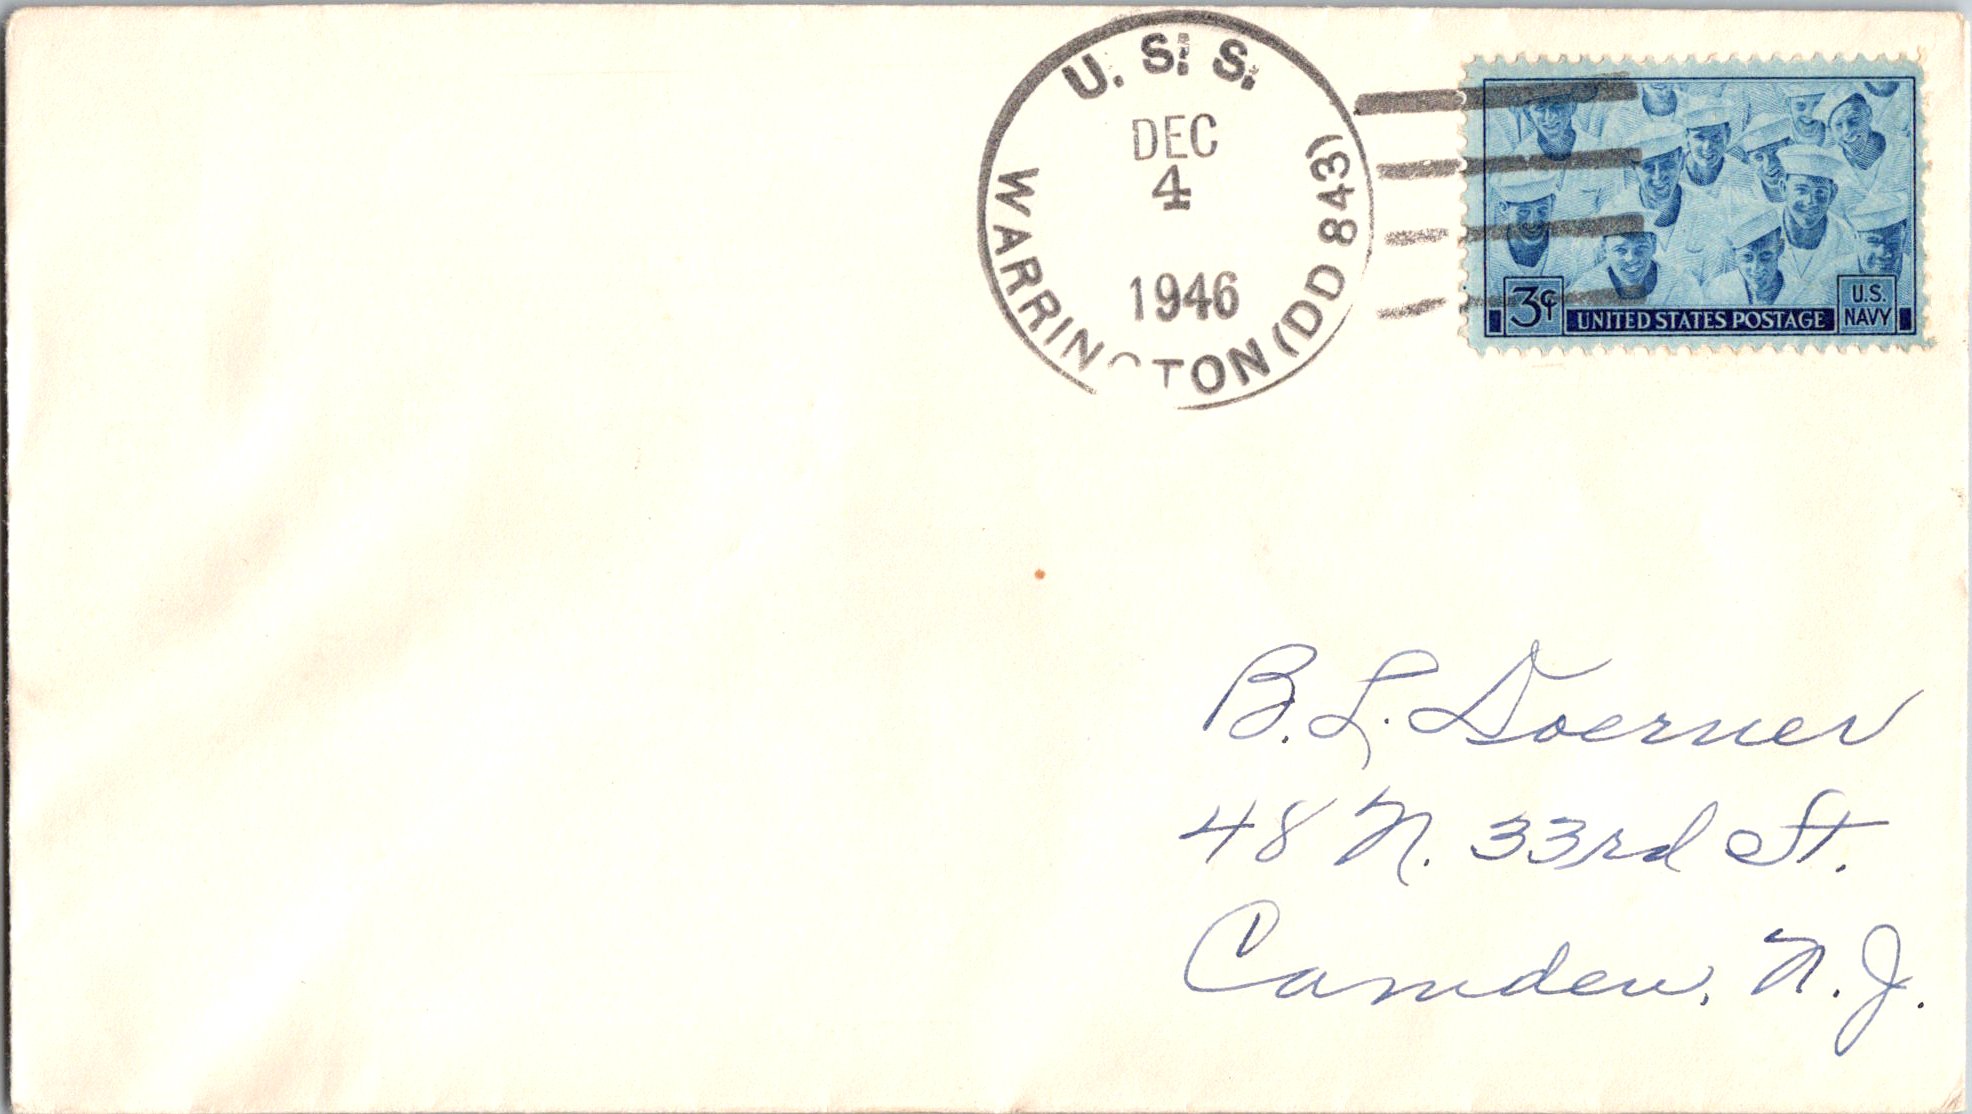 U. S. S.
WARRINGTON (DD 843)
DEC
4
1946
3¢
UNITED STATES POSTAGE
U.S.
NAVY
B. L. Doerner
48 N. 33rd St.
Camden, N. J.